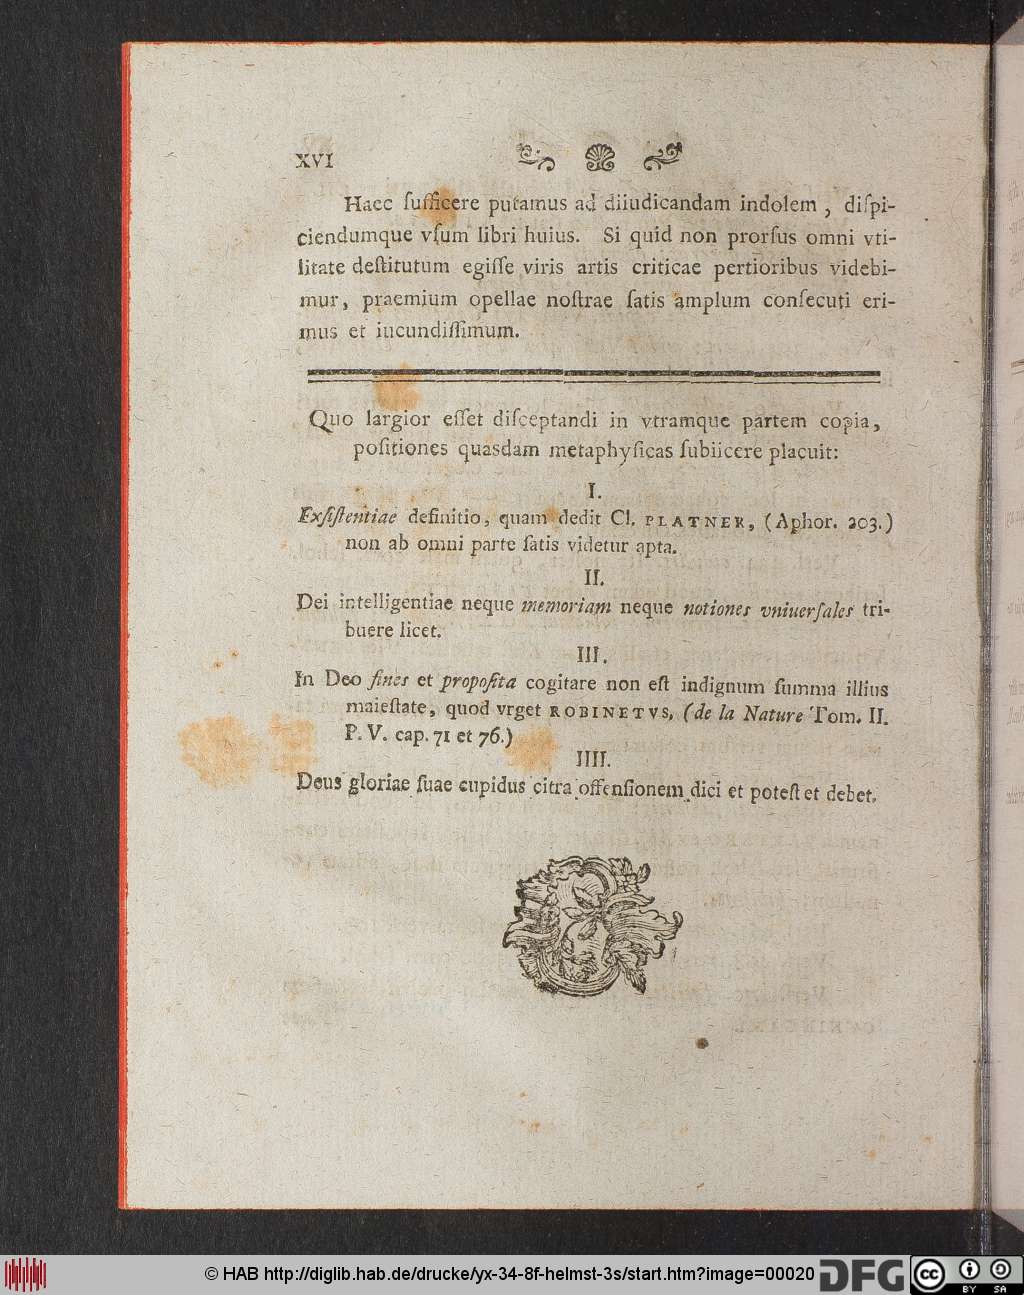 XVI
Haec ſufficere putamus ad diiudicandam indolem , diſpi-
ciendumque vſum libri huius. Si quid non prorſus omni vti-
litate deſtitutum egiſſe viris artis criticae peritioribus videbi-
mur, praemium opellae noſtrae ſatis amplum conſecuti eri-
mus et iucundiſſimum.
Quo largior eſſet diſceptandi in vtramque partem copia,
poſitiones quasdam metaphyſicas ſubiicere placuit:
I.
Exſiſtentiae definitio, quam dedit Cl. PLATNER, (Aphor. 203.)
non ab omni parte ſatis videtur apta.
II.
Dei intelligentiae neque memoriam neque notiones vniuerſales tri-
buere licet.
III.
In Deo fines et propoſita cogitare non eſt indignum ſumma illius
maieſtate, quod vrget ROBINETVS, (de la Nature Tom. II.
P. V. cap. 71 et 76.)
IIII.
Deus gloriae ſuae cupidus citra offenſionem dici et poteſt et debet.
© HAB http://diglib.hab.de/drucke/yx-34-8f-helmst-3s/start.htm?image=00020
DFG
cc
BY
SA